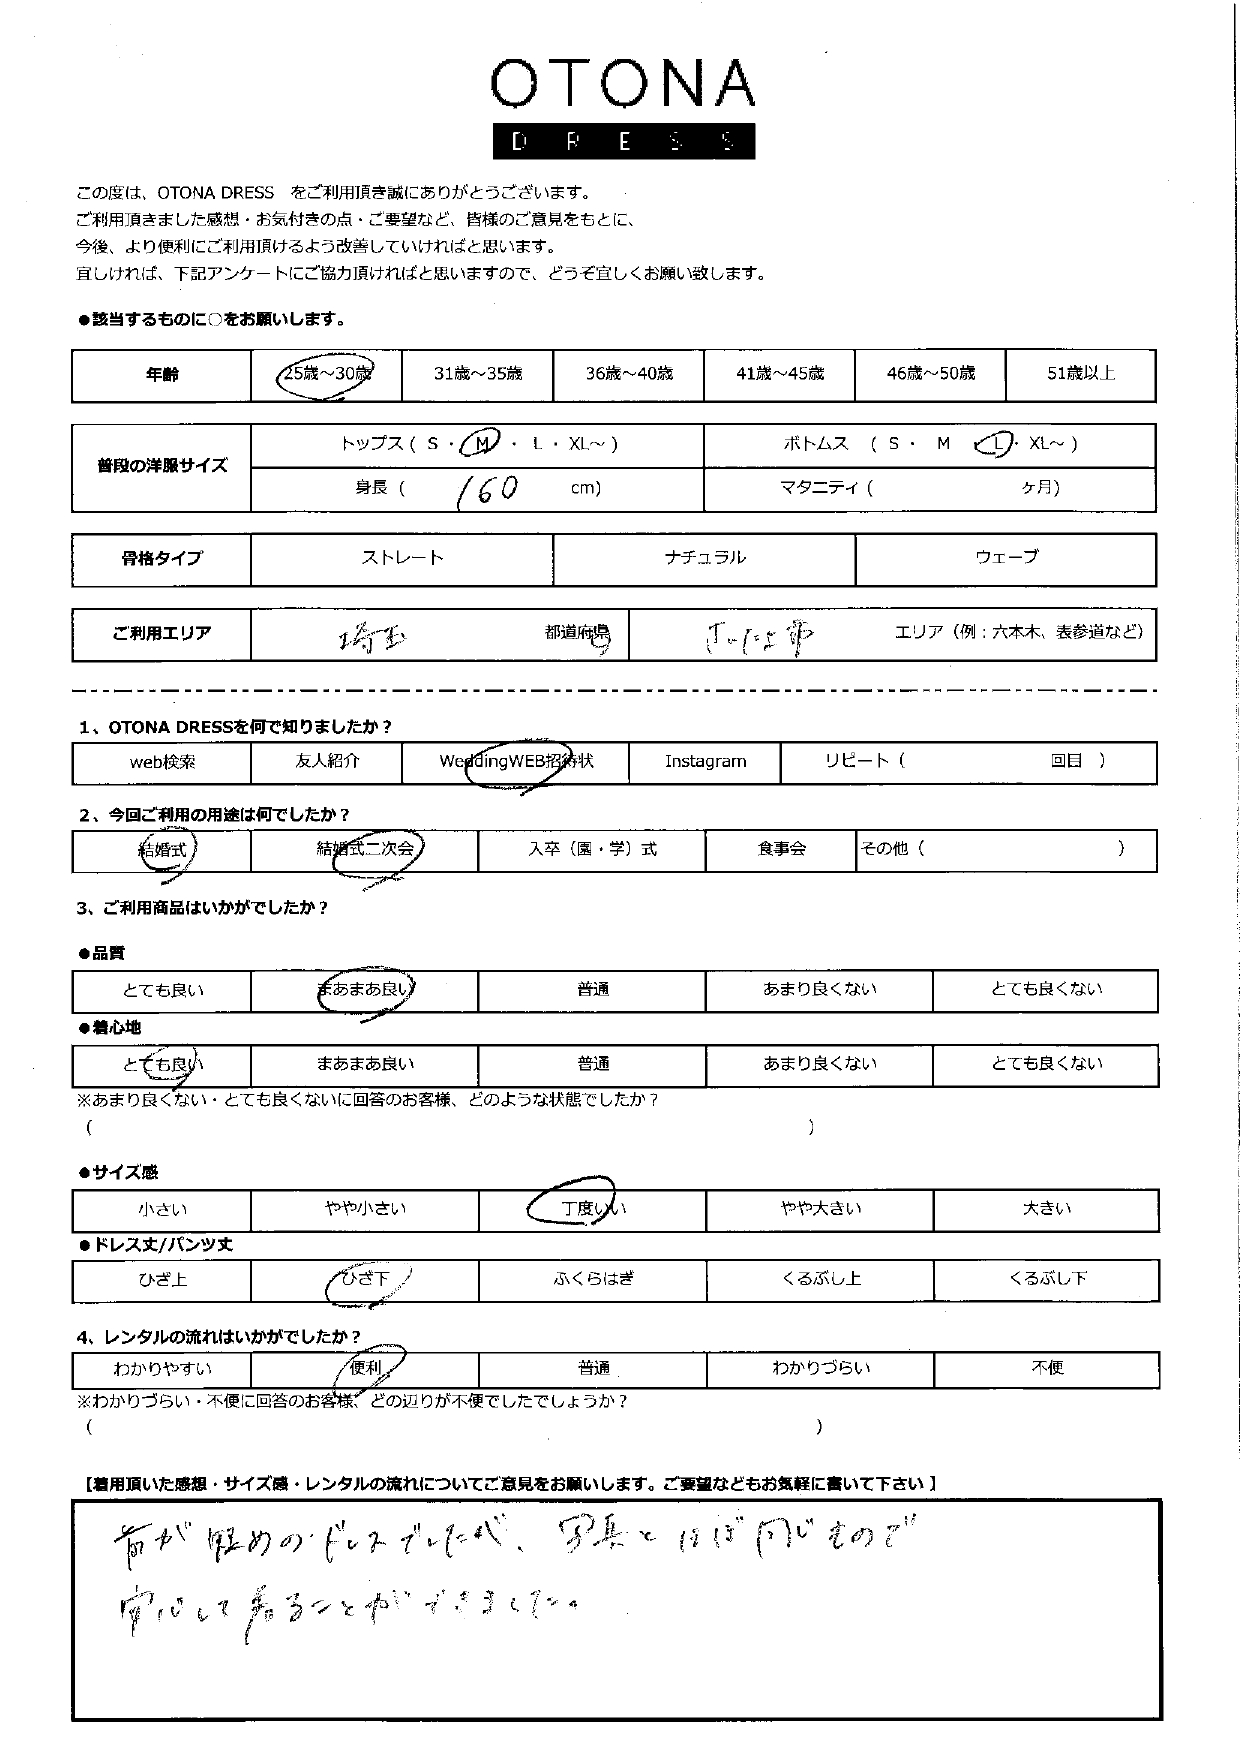 OTONA
DRESS
この度は、OTONA DRESS をご利用頂き誠にありがとうございます。
ご利用頂きました感想・お気付きの点・ご要望など、皆様のご意見をもとに、
今後、より便利にご利用頂けるよう改善していければと思います。
宜しければ、下記アンケートにご協力頂ければと思いますので、どうぞ宜しくお願い致します。
●該当するものに○をお願いします。
年齢 25歳～30歳 31歳～35歳 36歳～40歳 41歳～45歳 46歳～50歳 51歳以上
普段の洋服サイズ
トップス ( S ・ M ・ L ・ XL～ ) ボトムス ( S ・ M ・ L ・ XL～ )
身長 ( 160 cm) マタニティ ( ヶ月)
骨格タイプ ストレート ナチュラル ウェーブ
ご利用エリア 埼玉 都道府県 さいたま市 エリア（例：六本木、表参道など）
1、OTONA DRESSを何で知りましたか？
web検索 友人紹介 WeddingWEB招待状 Instagram リピート ( 回目 )
2、今回ご利用の用途は何でしたか？
結婚式 結婚式二次会 入卒（園・学）式 食事会 その他 ( )
3、ご利用商品はいかがでしたか？
●品質
とても良い まあまあ良い 普通 あまり良くない とても良くない
●着心地
とても良い まあまあ良い 普通 あまり良くない とても良くない
※あまり良くない・とても良くないに回答のお客様、どのような状態でしたか？
( )
●サイズ感
小さい やや小さい 丁度いい やや大きい 大きい
●ドレス丈/パンツ丈
ひざ上 ひざ下 ふくらはぎ くるぶし上 くるぶし下
4、レンタルの流れはいかがでしたか？
わかりやすい 便利 普通 わかりづらい 不便
※わかりづらい・不便に回答のお客様、どの辺りが不便でしたでしょうか？
( )
【着用頂いた感想・サイズ感・レンタルの流れについてご意見をお願いします。ご要望などもお気軽に書いて下さい】
前が短めのドレスでしたが、写真とほぼ同じもので
安心して着ることができました。